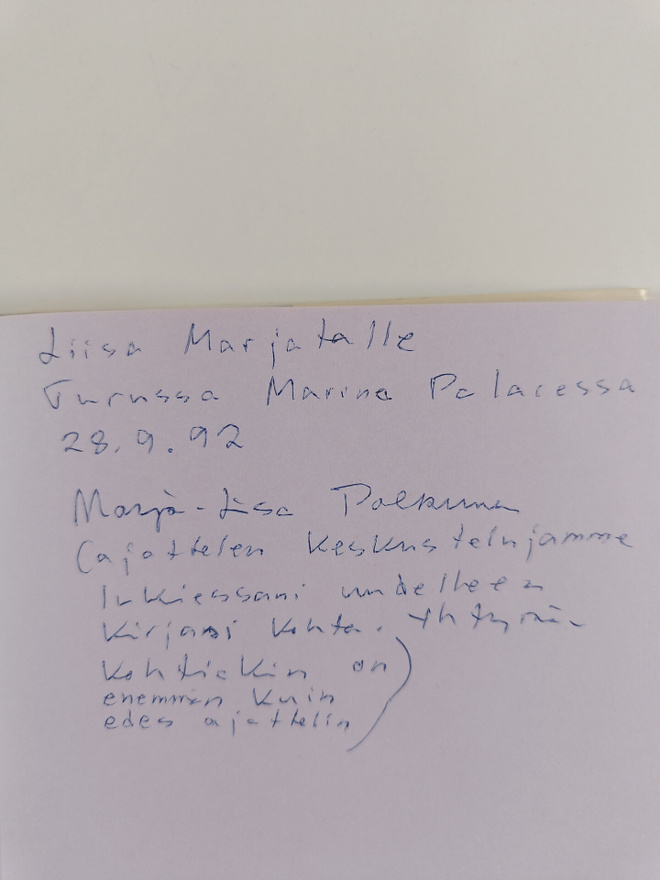 Liisa Marjatalle
Turussa Marina Palacessa
28.9.92
Marja-Liisa
(ajattelen keskustelujamme
lukiessani uudelleen
kirjani kohta. Yhtymä-
kohtiakin on
enemmän kuin
edes ajattelin)